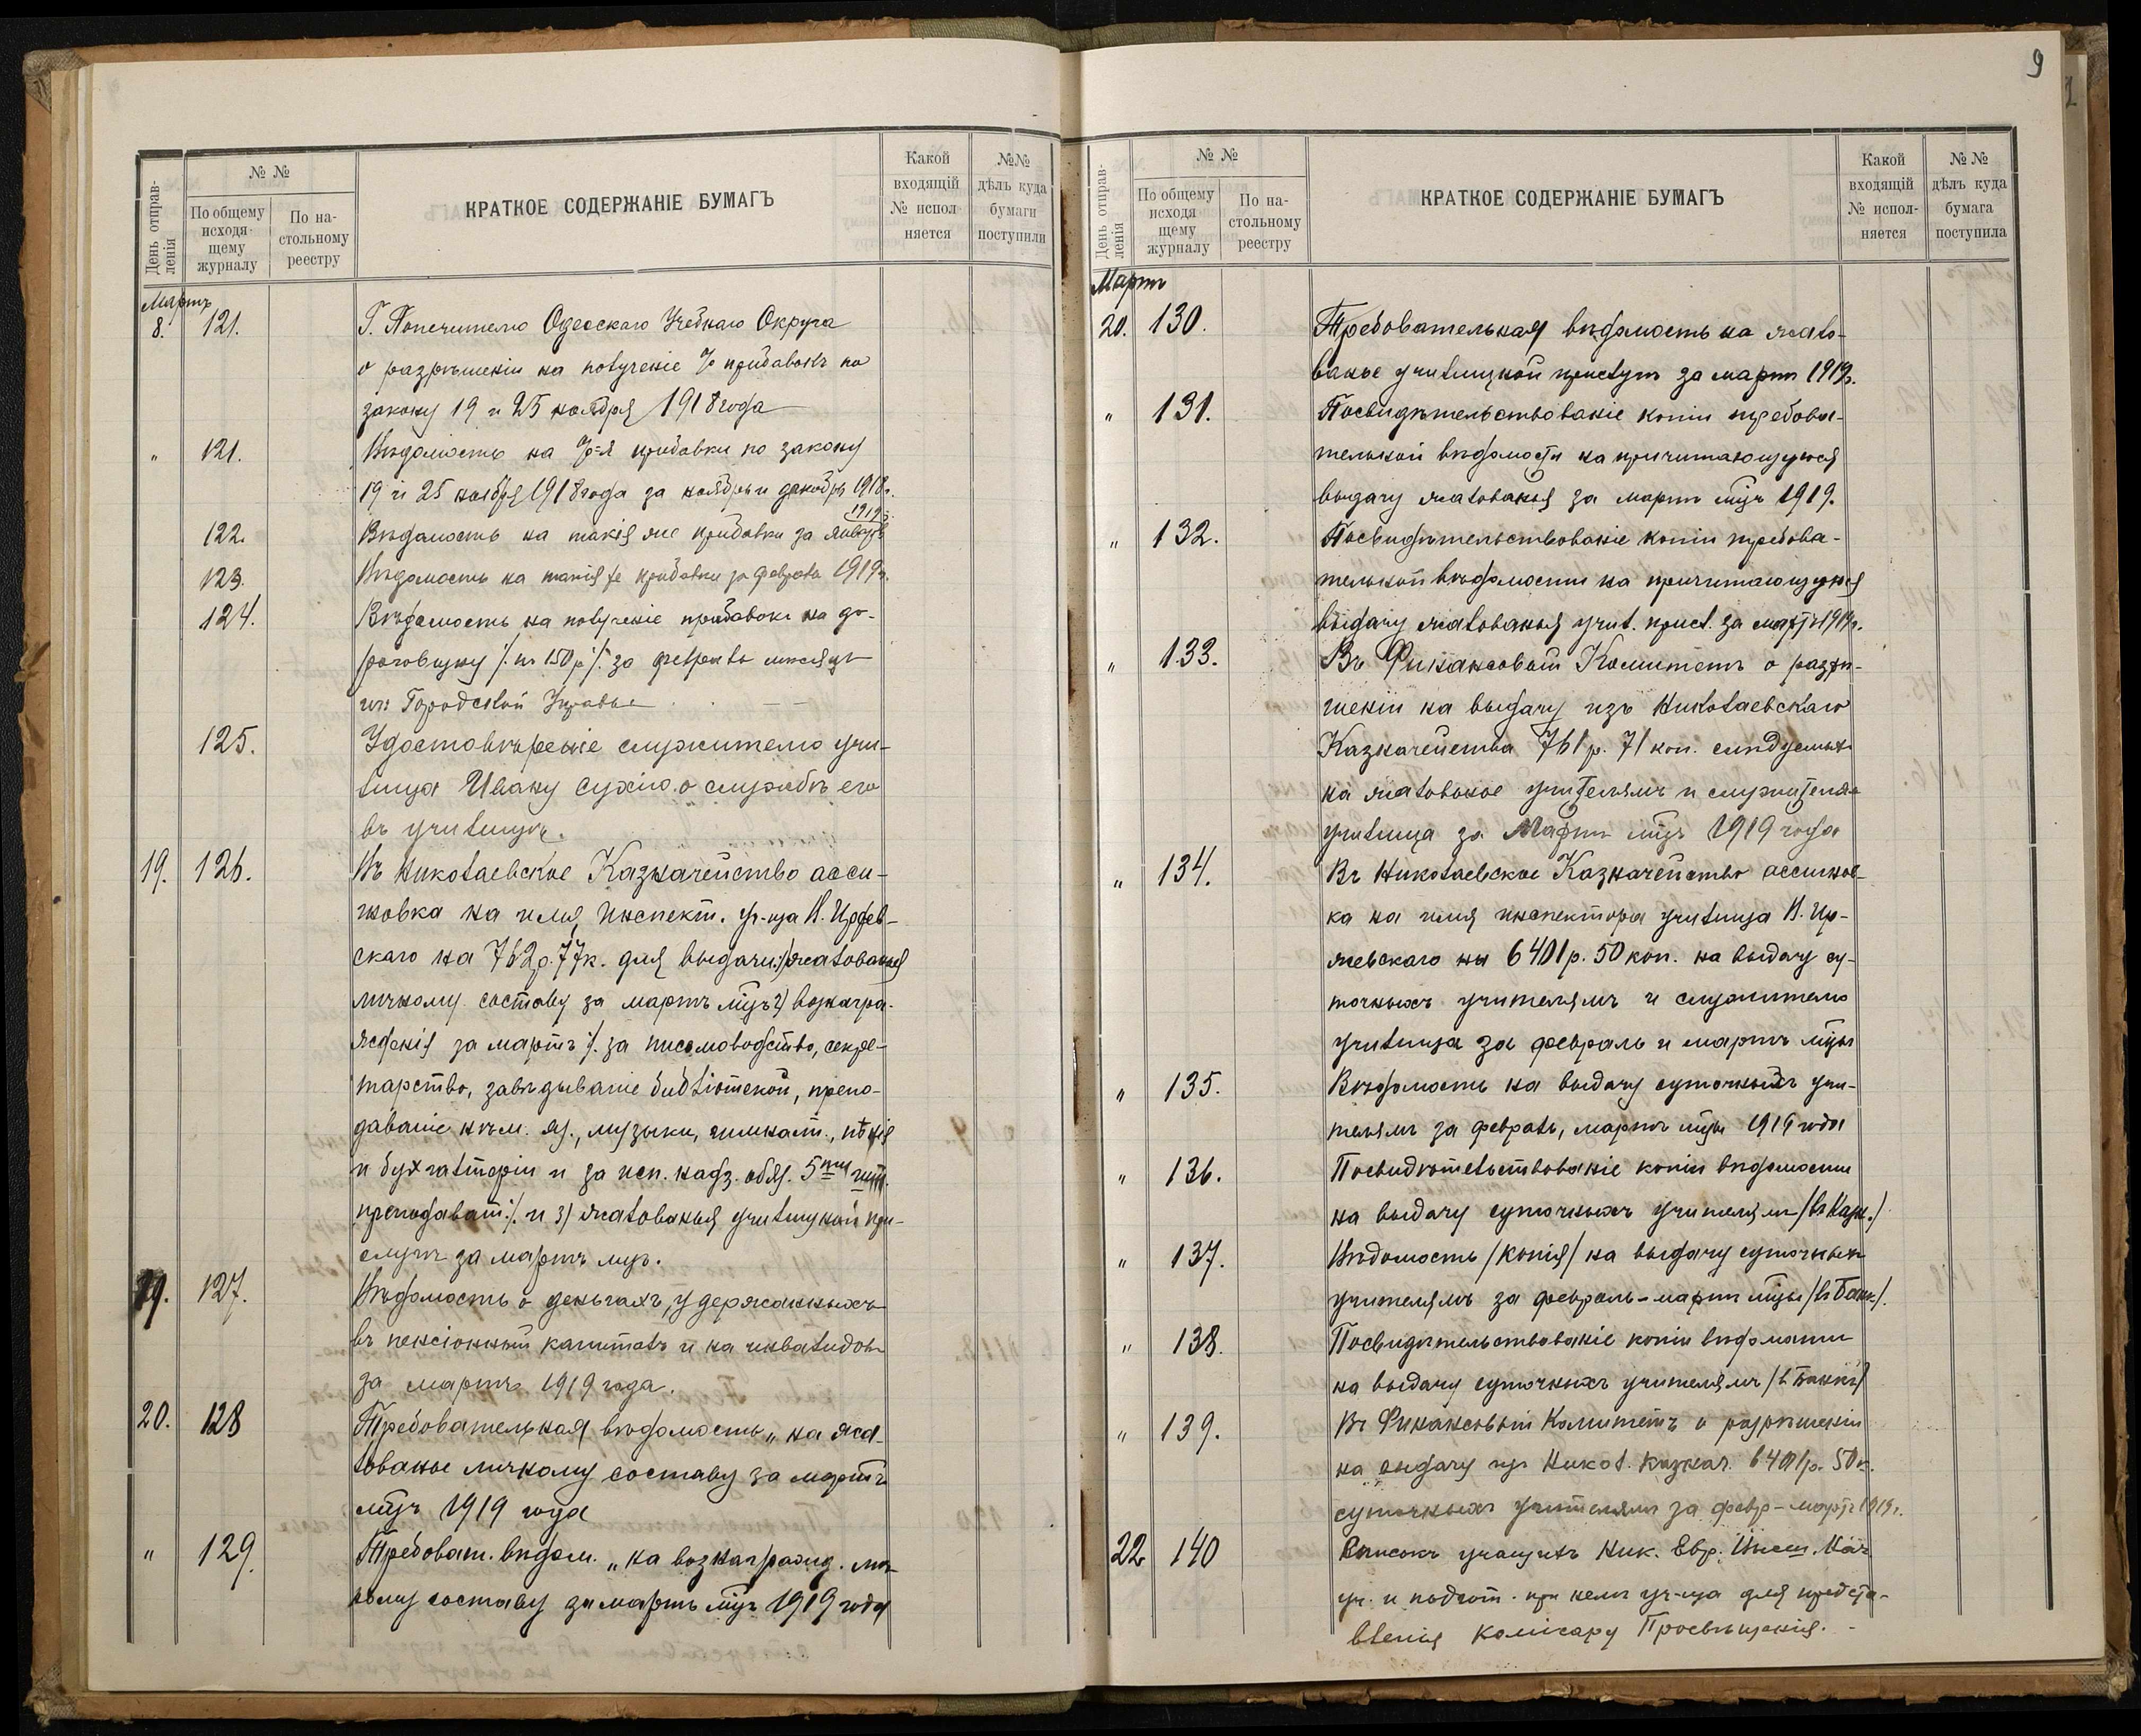 День отправ-
ленія
№ №
По общему
исходя-
щему
журналу
По на-
стольному
реестру
КРАТКОЕ СОДЕРЖАНІЕ БУМАГЪ
Какой
входящій
№ испол
няется
№№
дѣлъ куда
бумаги
поступили
Мартъ
8. 121. Г. Попечителю Одесскаго Учебнаго Округа
о разрѣшеніи на полученіе % прибавокъ по
закону 19 и 25 ноября 1918 года
" 121. Вѣдомость на %-я прибавки по закону
19 и 25 ноября 1918 года за ноябрь и декабрь 1918 г.
1919 г.
122. Вѣдомость на такія же прибавки за январь
123. Вѣдомость на такія же прибавки за февраль 1919 г.
124. Вѣдомость на полученіе прибавокъ на до-
роговизну /. по 150 р /. за февраль мѣсяцъ
изъ Городской Управы
125. Удостовѣреніе служителю учи-
лища Ивану Сухію о службѣ его
въ училищѣ.
19. 126. Въ Николаевское Казначейство асси-
новка на имя Инспект. уч-ща И.
скаго на 762 р. 77 к. для выдачи: жалованья
личному составу за мартъ мцъ 2) вознагра-
жденія за мартъ /. за письмоводство, секре-
тарство, завѣдываніе библіотекой, препо-
даваніе нѣм. яз., музыки, гимнаст., пѣнія
и бухгалтеріи и за исп. надз. обяз. 5ти шт.
преподават. /. и 3) жалованья училищной при-
слугѣ за мартъ мцъ.
19. 127. Вѣдомость о деньгахъ, удержанныхъ
въ пенсіонный капиталъ и на инвалидовъ
за мартъ 1919 года.
20. 128 Требовательная вѣдомость „на жа-
лованье личному составу за мартъ
мцъ 1919 года
" 129. Требоват. вѣдом. „на вознагражд. лич-
ному составу за мартъ мцъ 1919 года
9
День отправ-
ленія
№ №
По общему
исходя
щему
журналу
По на-
стольному
реестру
КРАТКОЕ СОДЕРЖАНІЕ БУМАГЪ
Какой
входящій
№ испол-
няется
№ №
дѣлъ куда
бумага
поступила
Март
20. 130. Требовательная вѣдомость на жало-
ванье училищной прислугѣ за март 1919 г.
" 131. Посвидѣтельствованіе копіи требова-
тельной вѣдомости на причитающуюся
выдачу жалованья за март мцъ 1919.
" 132. Посвидѣтельствованіе копіи требова-
тельной вѣдомости на причитающуюся
выдачу жалованья учил. присл. за мартъ 1919 г.
" 133. Въ Финансовый Комитетъ о разрѣ-
шеніи на выдачу изъ Николаевскаго
Казначейства 761 р. 71 коп. слѣдуемыхъ
на жалованье учителямъ и служителю
училища за Мартъ мцъ 1919 года
" 134. Въ Николаевское Казначейство ассигнов-
ка на имя инспектора училища И.
на 6401 р. 50 коп. на выдачу су-
точныхъ учителямъ и служителю
училища за февраль и мартъ мцы
" 135. Вѣдомость на выдачу суточныхъ учи-
телямъ за февраль, мартъ мцы 1919 года
" 136. Посвидѣтельствованіе копіи вѣдомости
на выдачу суточныхъ учителямъ /въ Казн./
" 137. Вѣдомость /копія/ на выдачу суточныхъ
учителямъ за февраль-мартъ мцы /въ Банк./.
" 138. Посвидѣтельствованіе копіи вѣдомости
на выдачу суточныхъ учителямъ /в Банкъ/
" 139. Въ Финансовый Комитетъ о разрѣшеніи
на выдачу изъ Никол. Казнач. 6401 р. 50 к.
суточныхъ учителямъ за февр-мартъ 1919 г.
22 140 Списокъ учащихъ Ник. Евр. Нач.
уч. и подгот. при немъ уч-ща для предста-
вленія комисару Просвѣщенія.